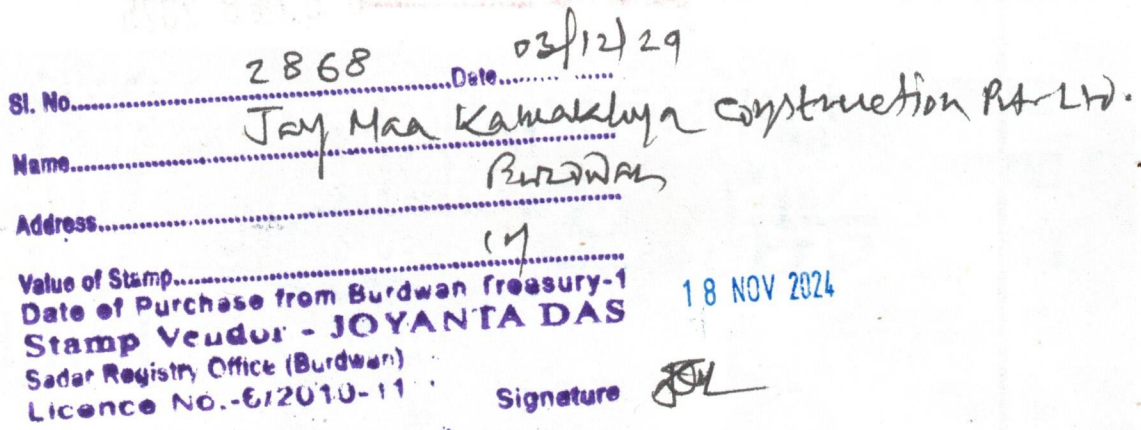 Sl. No. 2868 Date 03/12/24
Name Jay Maa Kamakhya Construction Pvt Ltd.
Address Burdwan
Value of Stamp
Date of Purchase from Burdwan Treasury-1 18 NOV 2024
Stamp Vendor - JOYANTA DAS
Sadar Registry Office (Burdwan)
Licence No.-6/2010-11 Signature